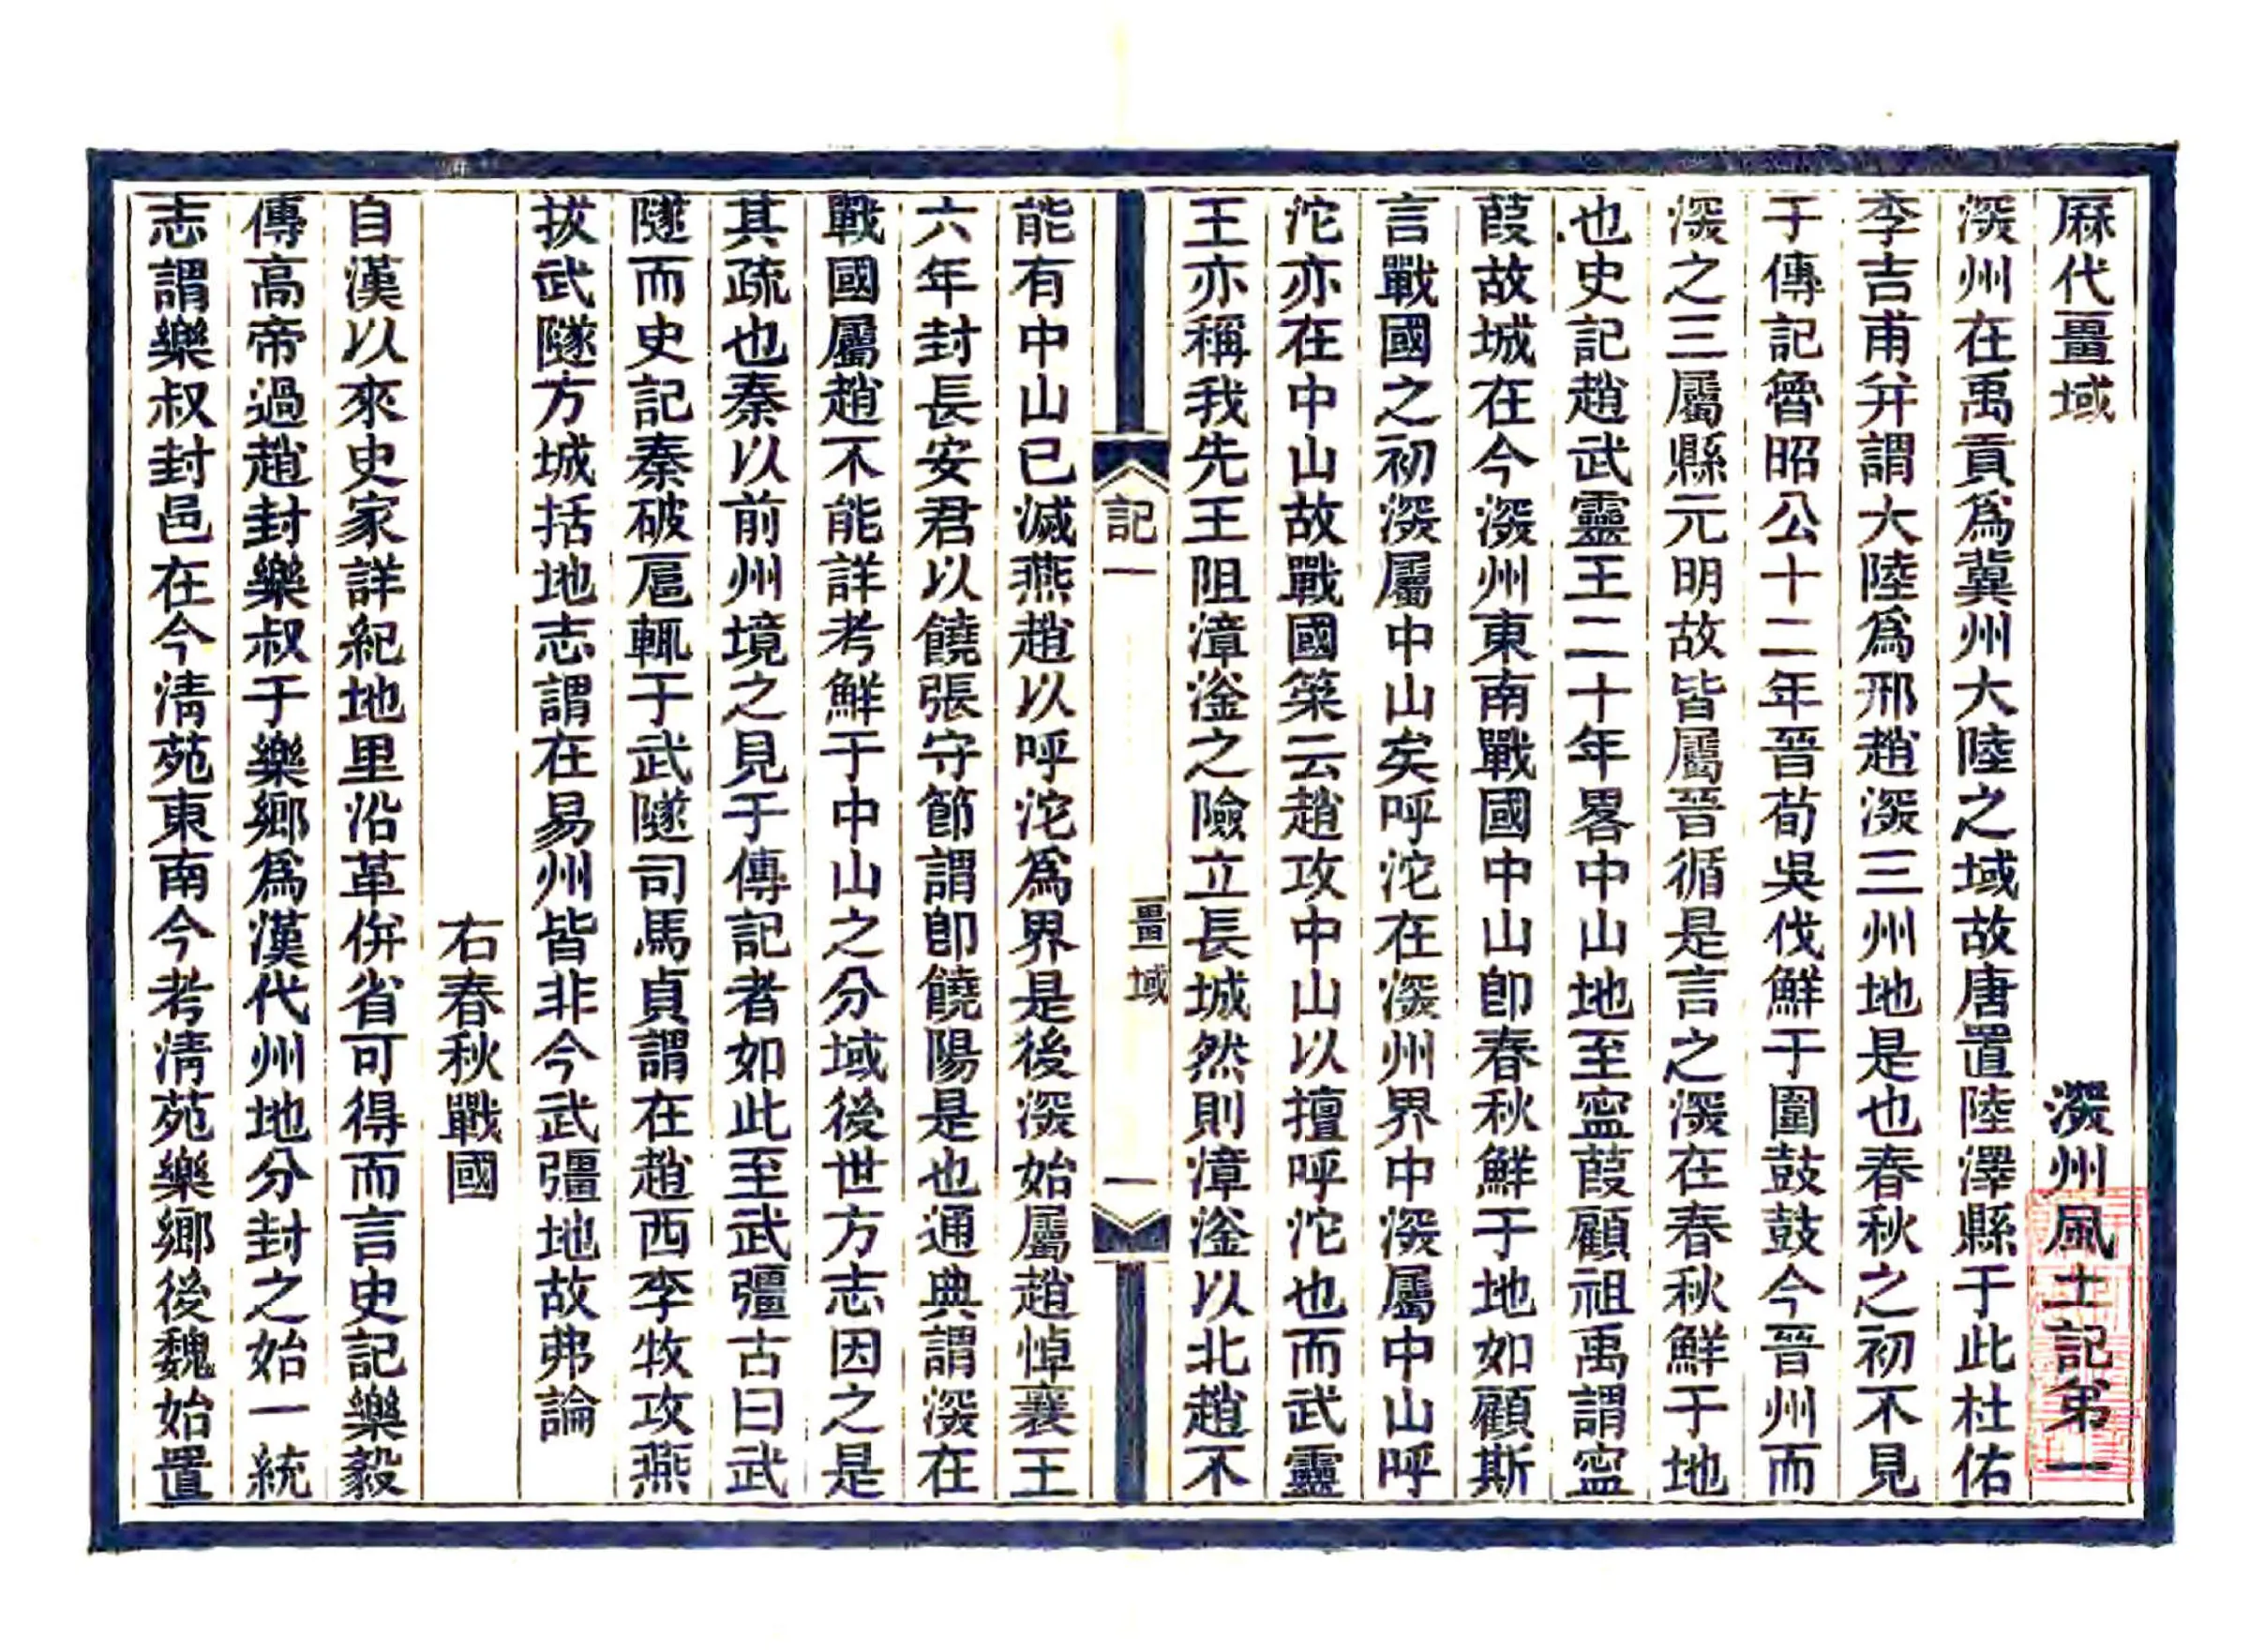 厤代畺域　深州風土記弟一
深州在禹貢爲冀州大陸之域故唐置陸澤縣于此杜佑
李吉甫幷謂大陸爲邢趙深三州地是也春秋之初不見
于傳記魯昭公十二年晉荀吳伐鮮于圍鼓鼓今晉州而
深之三屬縣元明故皆屬晉循是言之深在春秋鮮于地
也史記趙武靈王二十年畧中山地至寍葭顧祖禹謂寍
葭故城在今深州東南戰國中山卽春秋鮮于地如顧斯
言戰國之初深屬中山矣呼沱在深州界中深屬中山呼
沱亦在中山故戰國策云趙攻中山以擅呼沱也而武靈
王亦稱我先王阻漳滏之險立長城然則漳滏以北趙不
記一　畺域　一
能有中山已滅燕趙以呼沱爲界是後深始屬趙悼襄王
六年封長安君以饒張守節謂卽饒陽是也通典謂深在
戰國屬趙不能詳考鮮于中山之分域後世方志因之是
其疏也秦以前州境之見于傳記者如此至武彊古曰武
隧而史記秦破扈輒于武隧司馬貞謂在趙西李牧攻燕
拔武隧方城括地志謂在易州皆非今武彊地故弗論
右春秋戰國
自漢以來史家詳紀地里沿革倂省可得而言史記樂毅
傳高帝過趙封樂叔于樂鄉爲漢代州地分封之始一統
志謂樂叔封邑在今淸苑東南今考淸苑樂鄉後魏始置